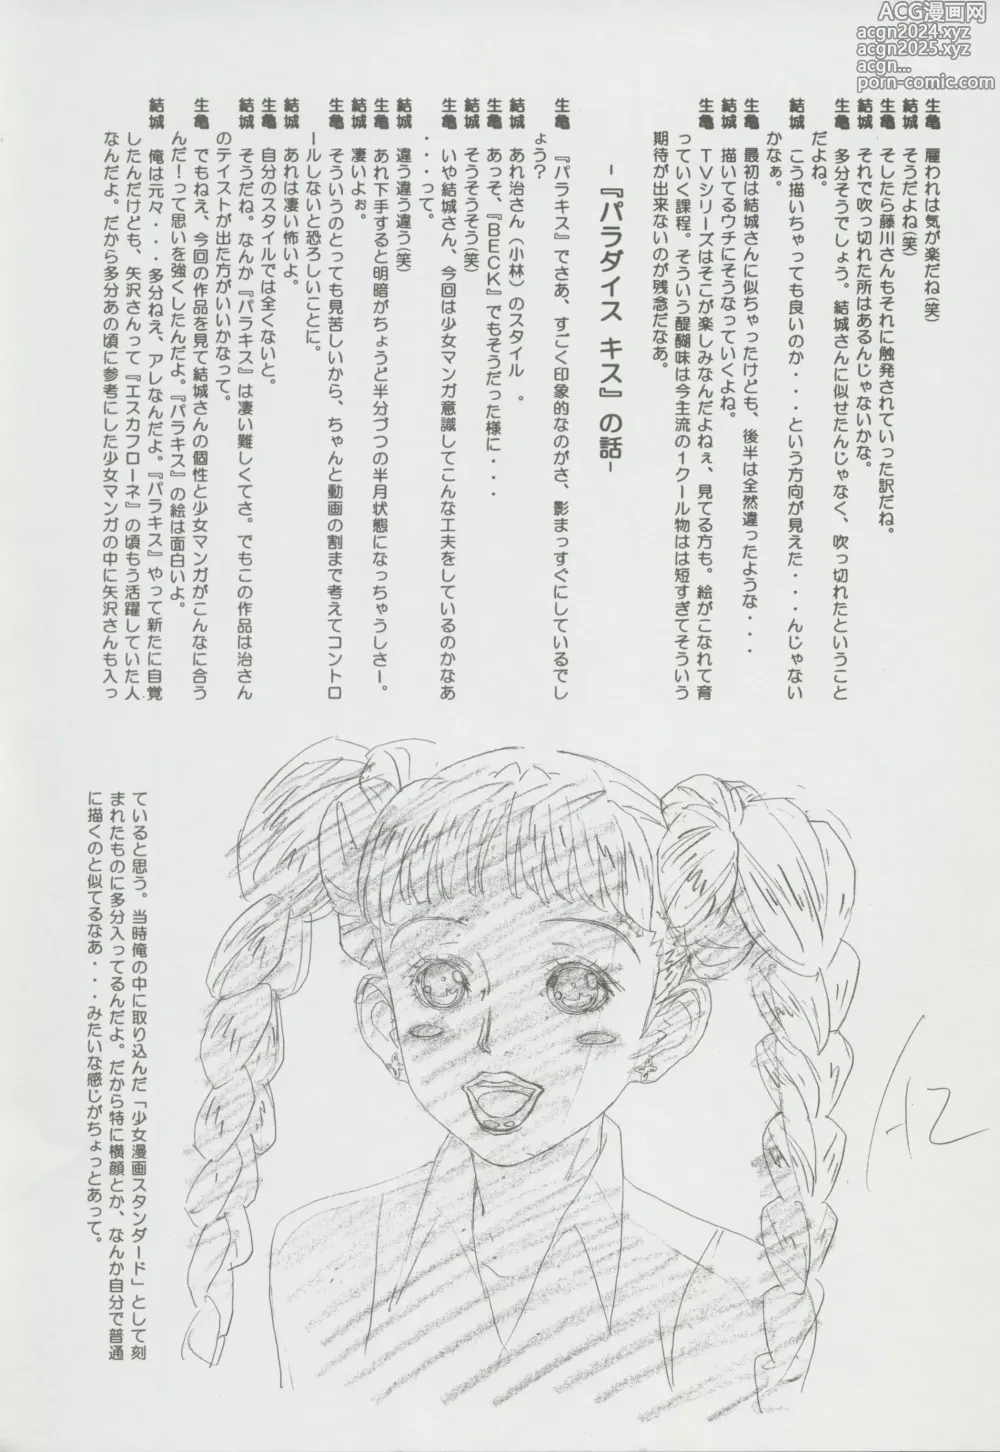 ACG漫画网
acgn2024.xyz
acgn2025.xyz
acgn...
porn-comic.com
生亀　雇われは気が楽だね(笑)
結城　そうだよね(笑)
生亀　そしたら藤川さんもそれに触発されていった訳だね。
結城　それで吹っ切れた所はあるんじゃないかな。
生亀　多分そうでしょう。結城さんに似せたんじゃなく、吹っ切れたということ
だよね。
結城　こう描いちゃっても良いのか・・・という方向が見えた・・・んじゃない
かなぁ。
生亀　最初は結城さんに似ちゃったけども、後半は全然違ったような・・・
結城　描いてるウチにそうなっていくよね。
生亀　ＴＶシリーズはそこが楽しみなんだよねぇ、見てる方も。絵がこなれて育
っていく課程。そういう醍醐味は今主流の１クール物はは短すぎてそういう
期待が出来ないのが残念だなあ。
-『パラダイス キス』の話-
生亀　『パラキス』でさあ、すごく印象的なのがさ、影まっすぐにしているでし
ょう?
結城　あれ治さん（小林）のスタイル 。
生亀　あっそ、『ＢＥＣＫ』でもそうだった様に・・・
結城　そうそうそう(笑)
生亀　いや結城さん、今回は少女マンガ意識してこんな工夫をしているのかなあ
・・・って。
結城　違う違う違う(笑)
生亀　あれ下手すると明暗がちょうど半分づつの半月状態になっちゃうしさー。
結城　凄いよぉ。
生亀　そういうのとっても見苦しいから、ちゃんと動画の割まで考えてコントロ
ールしないと恐ろしいことに。
結城　あれは凄い怖いよ。
生亀　自分のスタイルでは全くないと。
結城　そうだね。なんか『パラキス』は凄い難しくてさ。でもこの作品は治さん
のテイストが出た方がいいかなって。
生亀　でもねえ、今回の作品を見て結城さんの個性と少女マンガがこんなに合う
んだ！って思いを強くしたんだよ。『パラキス』の絵は面白いよ。
結城　俺は元々・・・多分ねえ、アレなんだよ。『パラキス』やって新たに自覚
したんだけども、矢沢さんって『エスカフローネ』の頃もう活躍していた人
なんだよ。だから多分あの頃に参考にした少女マンガの中に矢沢さんも入っ
ていると思う。当時俺の中に取り込んだ「少女漫画スタンダード」として刻
まれたものに多分入ってるんだよ。だから特に横顔とか、なんか自分で普通
に描くのと似てるなあ・・・みたいな感じがちょっとあって。